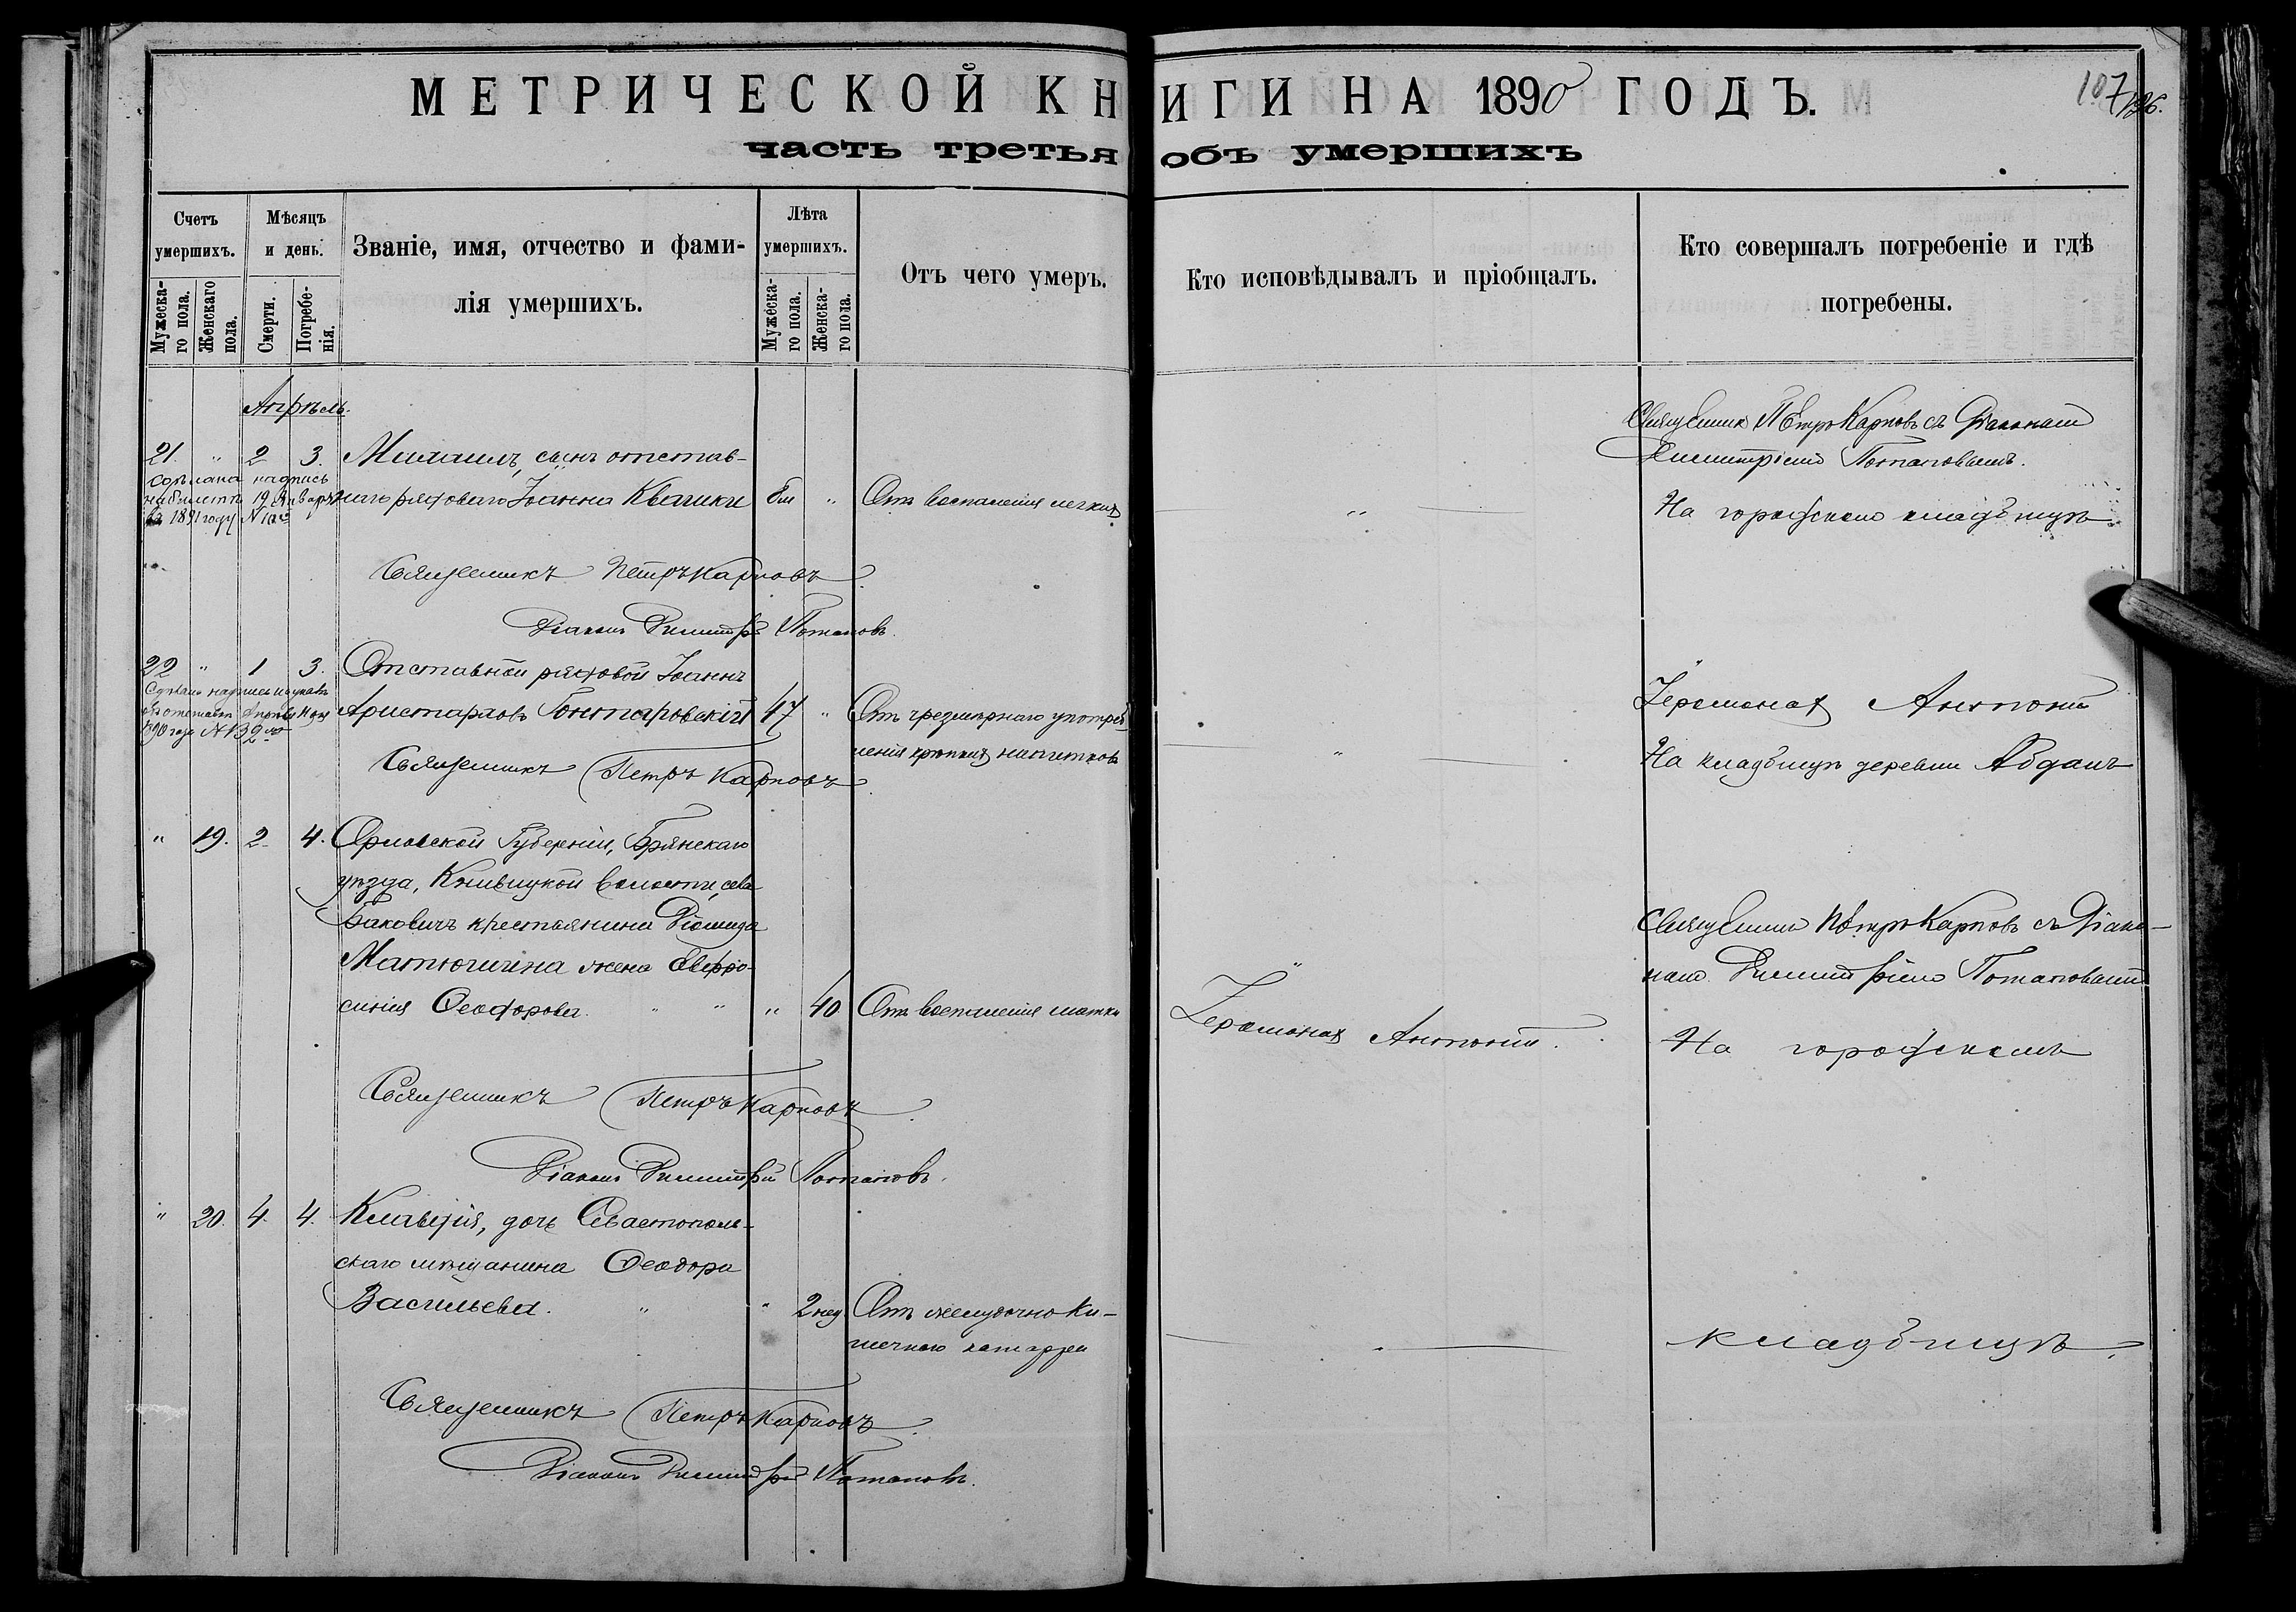 МЕТРИЧЕСКОЙ КНИГИ НА 1890 ГОДЪ.
107
126.
часть третья объ умершихъ
Счетъ умершихъ.
Мужескаго пола.
Женскаго пола.
Мѣсяцъ и день.
Смерти.
Погребенія.
Званіе, имя, отчество и фами-
лія умершихъ.
Лѣта умершихъ.
Мужескаго пола.
Женскаго пола.
Отъ чего умеръ.
Кто исповѣдывалъ и пріобщалъ.
Кто совершалъ погребеніе и гдѣ
погребены.
Апрѣль.
21. " 2 3. Михаилъ, сынъ отстав-
наго рядоваго Іоанна Квашки 8м " Отъ воспаленія легкихъ
сдѣлана надпись
на билетѣ 19 Января
въ 1891 году №
Священникъ Петръ Карповъ съ Діакономъ
Димитріемъ Потаповымъ.
На городскомъ кладбищѣ.
Священникъ Петръ Карповъ
Діаконъ Димитрій Потаповъ.
22 " 1 3. Отставной рядовой Іоаннъ
Аристарховъ Гонтаровскій 47 " Отъ чрезмѣрнаго употреб-
ленія крѣпкихъ напитковъ
Сдѣлана надпись на указѣ
объ отставкѣ Апрѣля 11 дня
1890 года №
Іеромонахъ Антоній
На кладбищѣ деревни Абдалъ
Священникъ Петръ Карповъ
" 19. 2 4. Орловской Губерніи, Брянскаго
уѣзда, волости, села
Баковичъ крестьянина Діомида
Матюшина жена Евфро-
синія Феодорова. " " " 40 Отъ воспаленія матки
Іеромонахъ Антоній.
Священникъ Петръ Карповъ съ Діако-
номъ Димитріемъ Потаповымъ
На городскомъ
Священникъ Петръ Карповъ
Діаконъ Димитрій Потаповъ.
" 20. 4. 4. Клавдія, дочь Севастополь-
скаго мѣщанина Феодора
Васильева. " " 2 нед. Отъ желудочно-ки-
шечнаго катарра
кладбищѣ.
Священникъ Петръ Карповъ
Діаконъ Димитрій Потаповъ.